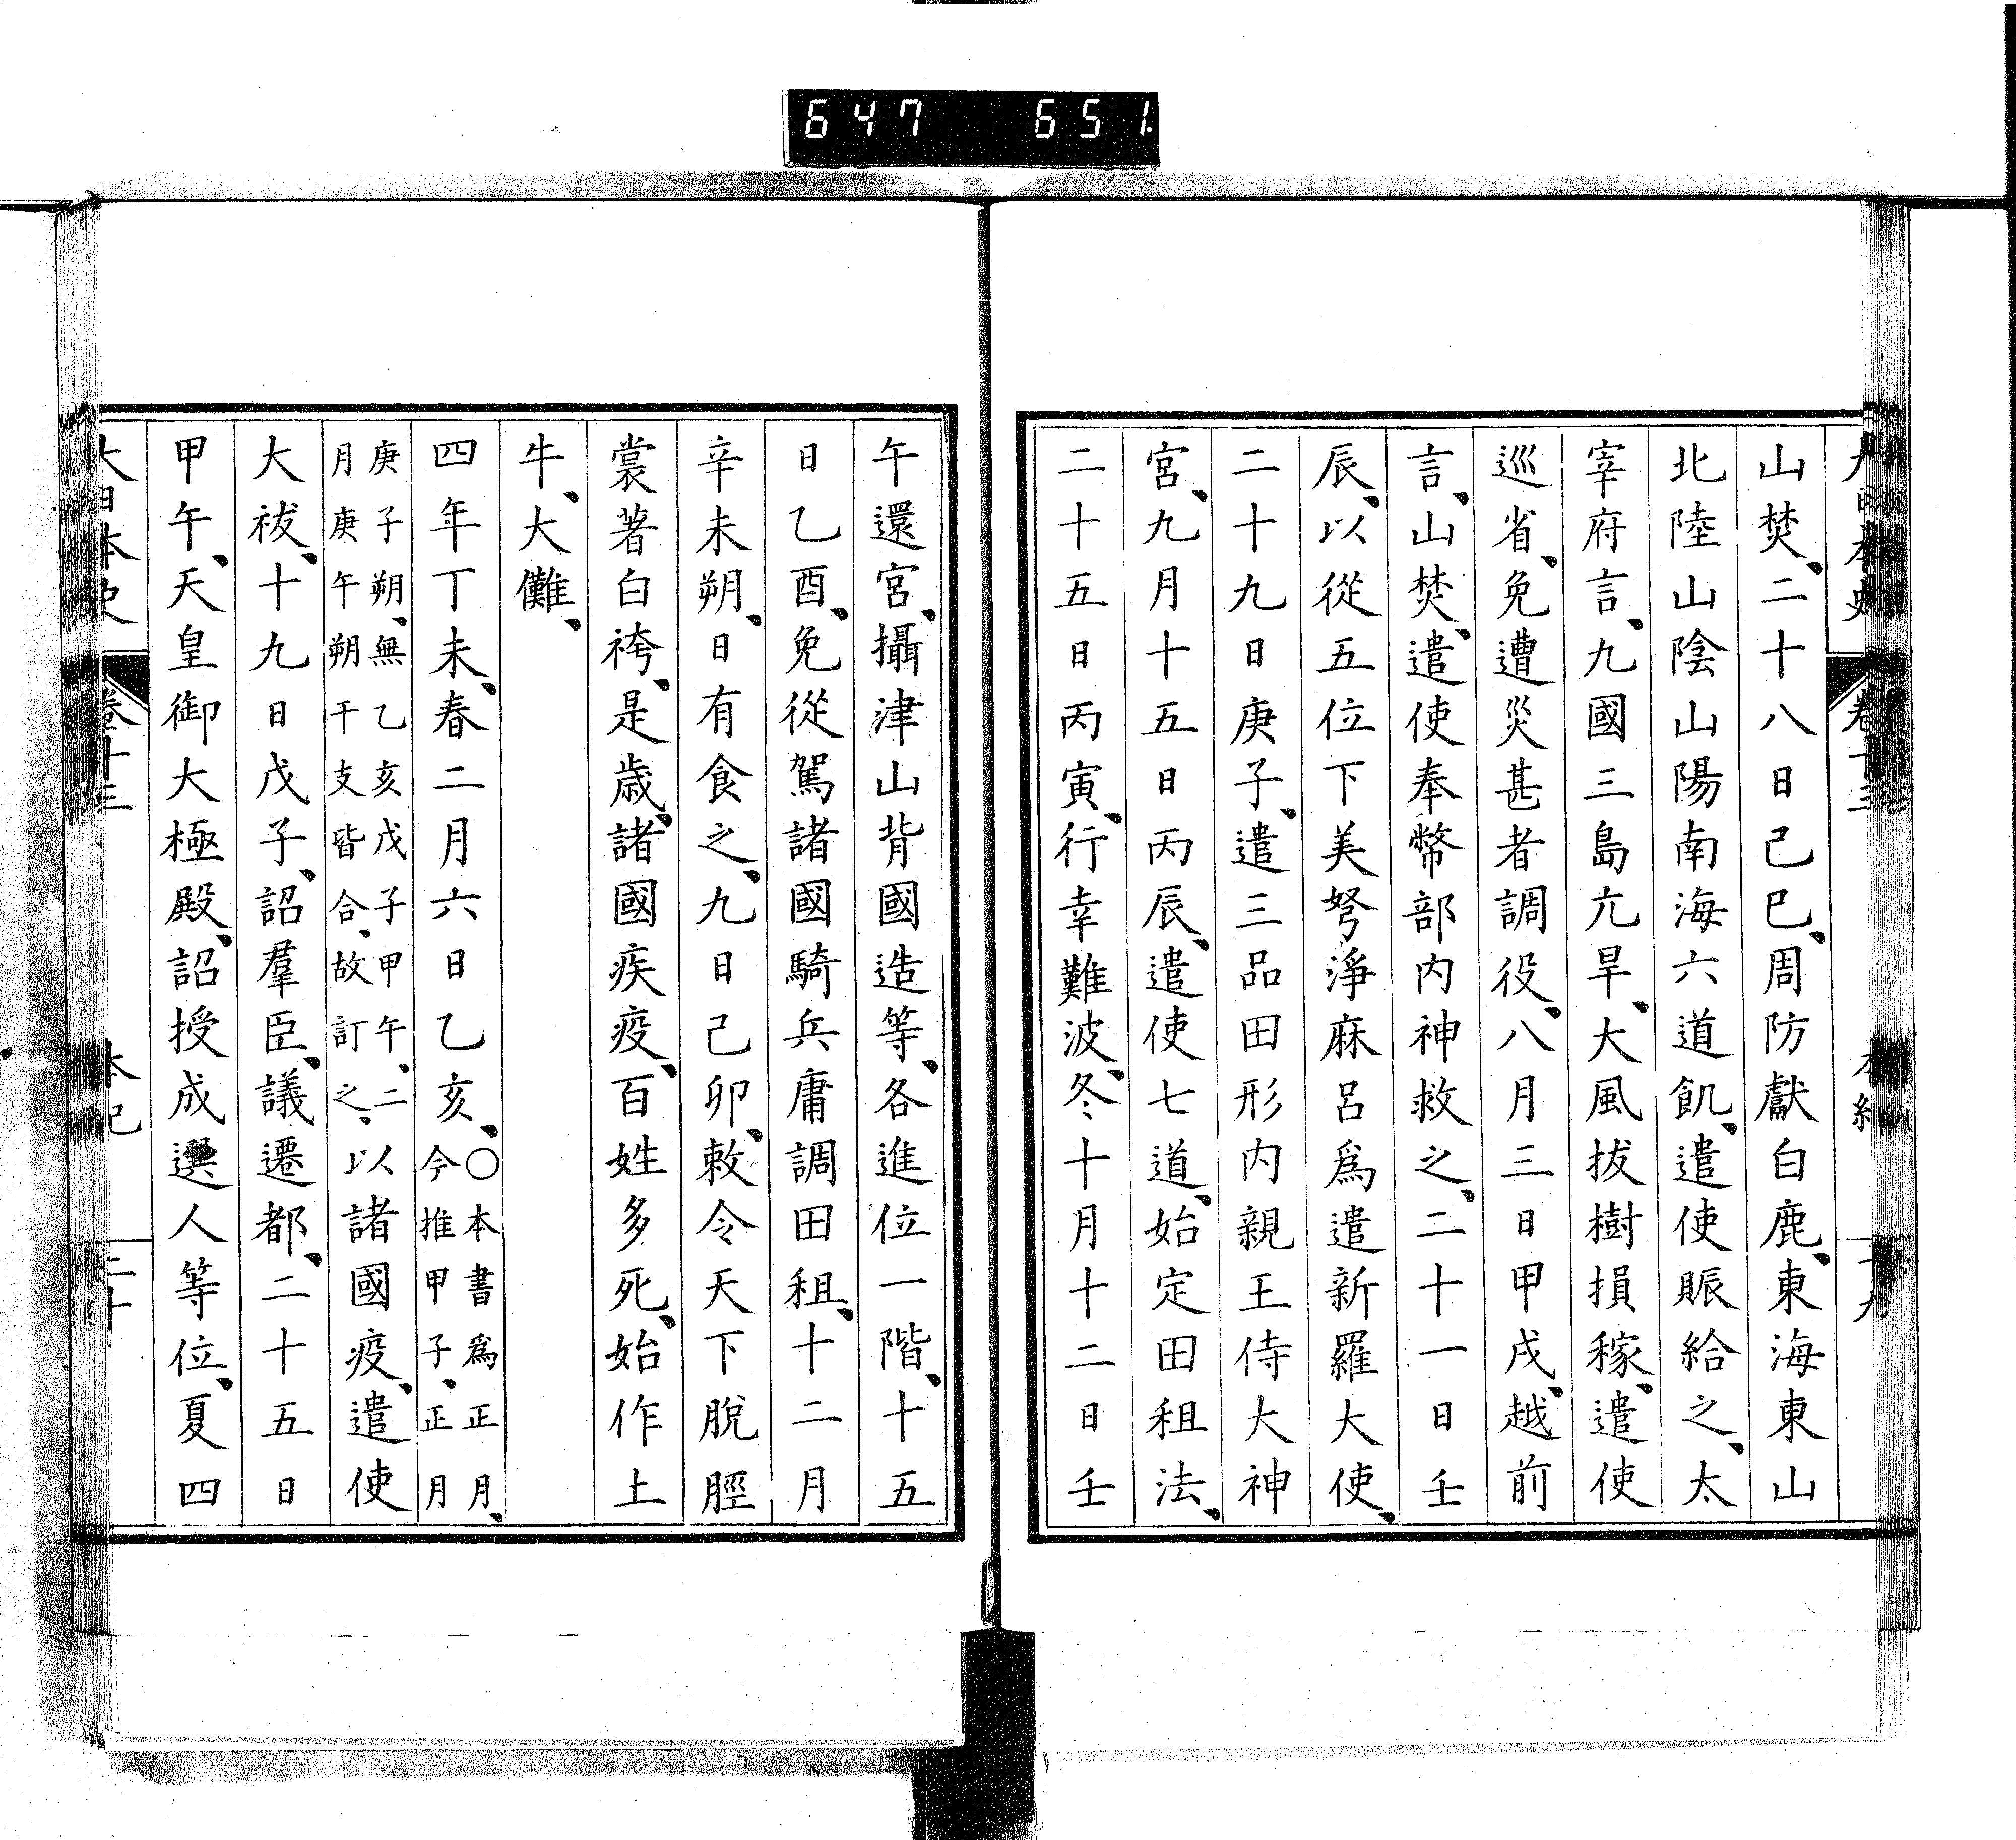 647 651.
大日本史 卷十三 本紀 十九
山焚、二十八日己巳、周防獻白鹿、東海東山
北陸山陰山陽南海六道飢、遣使賑給之、太
宰府言、九國三島亢旱、大風拔樹損稼、遣使
巡省、免遭災甚者調役、八月三日甲戌、越前
言、山焚、遣使奉幣部内神救之、二十一日壬
辰、以從五位下美弩淨麻呂爲遣新羅大使、
二十九日庚子、遣三品田形内親王侍大神
宮、九月十五日丙辰、遣使七道、始定田租法、
二十五日丙寅、行幸難波、冬十月十二日壬
午還宮、攝津山背國造等、各進位一階、十五
日乙酉、免從駕諸國騎兵庸調田租、十二月
辛未朔、日有食之、九日己卯、敕令天下脫脛
裳著白袴、是歲、諸國疾疫、百姓多死、始作土
牛、大儺、
四年丁未、春二月六日乙亥、〇本書爲正月、今推甲子、正月
庚子朔、無乙亥戊子甲午、二月庚午朔干支皆合、故訂之、以諸國疫、遣使
大祓、十九日戊子、詔羣臣、議遷都、二十五日
甲午、天皇御大極殿、詔授成選人等位、夏四
大日本史 卷十三 本紀 二十